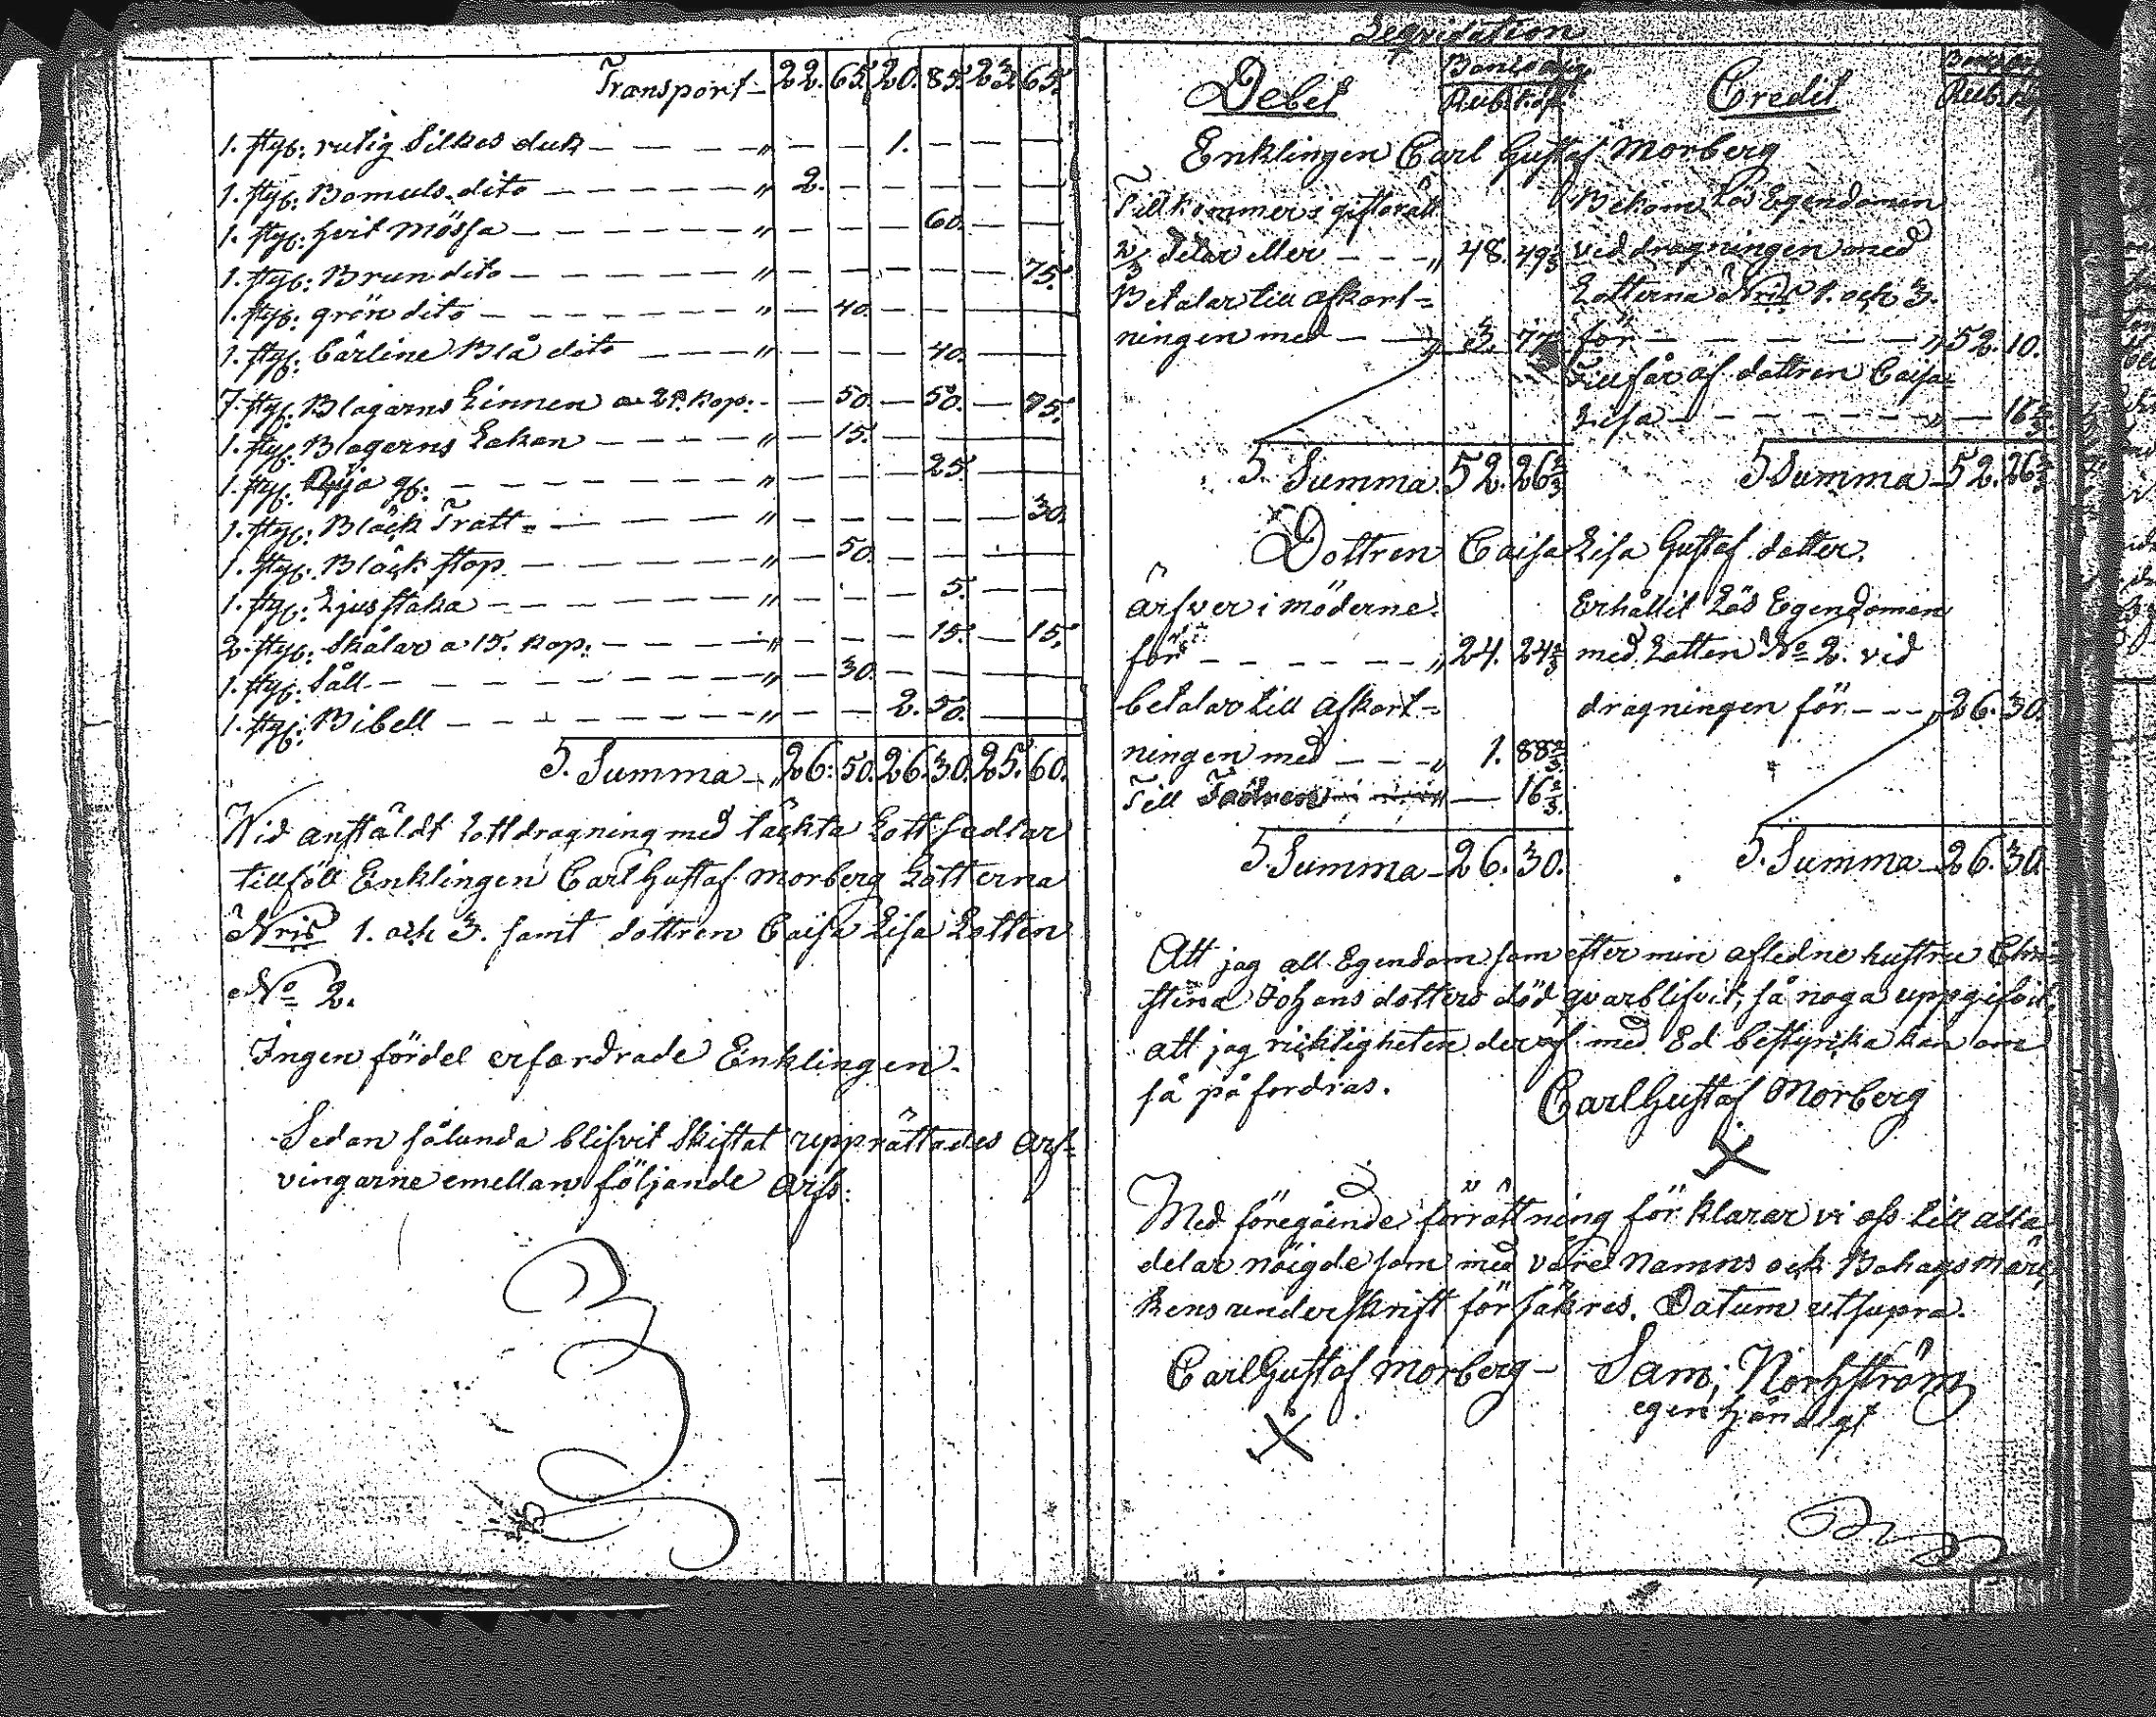 Transport — 22. 65. 20. 85. 23. 65.
1. styf: rutig Silkes duk — — — — „ — — 1. — — —
1. styf: Bomuls dito — — — — — „ 2. — — — — —
1. styf: hvit Mössa — — — — — „ — — — 60. — —
1. styf: Brun dito — — — — — „ — — — — — 75.
1. styf: grön dito — — — — — „ — 40. — — — —
1. styf: Bärline Blå dito — — — „ — — — 40. — —
7. styf: Blagarns Linnen a 25. kop: — — 50. — 50. — 75.
1. styf: Blagarns Lakan — — — — „ — 15. — — — —
1. styf: — — — — — — „ — — — 25. — —
1. styf: Bläck Tratt — — — — „ — — — — — 30.
1. styf: Bläck stop — — — — — „ — 50. — — — —
1. styf: Ljusstaka — — — — — „ — — — 5. — —
2. styf: Skålar a 15. kop. — — — — „ — — — 15. — 15.
1. styf: Såll — — — — — — „ — 30. — — — —
1. styf: Bibell — — — — — — „ — — 2. 50. — —
S. Summa — „ 26. 50. 26. 30. 25. 60.
Wid anstäldt Lottdragning med täckta Lott sedlar
tillföll Enklingen Carl Gustaf Morberg Lotterna
Nris 1. och 3. samt dottren Caisa Lisa Lotten
No 2.
Ingen fördel erfordrade Enklingen.
Sedan sålunda blifvit Skiftat upprättades Arf=
vingarne emellan följande Arfs:
Liqvidation
Debet Banco Rub. Credit Banco Rub.
Enklingen Carl Gustaf Morberg
Tillkommer i giftorätt
2/3 delar eller — — — „ 48. 49 1/3
Betalar till afkort=
ningen med — — „ 3. 77
S. Summa. 52. 26 2/3
Bekom. Lös Egendomen
vid dragningen med
Lotterna Nris 1. och 3.
för — — — — — „ 52. 10.
Tillfår af dottren Caisa
Lisa — — — — — „ — 16 2/3
S. Summa — 52. 26 2/3
Dottren Caisa Lisa Gustaf dotter.
Ärfver i möderne
för — — — — — „ 24. 24 2/3
betalar till afkort=
ningen med — — — „ 1. 88 2/3
Till Fadren — — — „ — 16 2/3
S. Summa — 26. 30.
Erhållit Lös Egendomen
med Lotten No 2. vid
dragningen för — — „ 26. 30.
S. Summa — 26. 30.
Att jag all Egendom som efter min afledne hustru Chri=
stina Johans dotters död qvarblifvit, så noga uppgifvit,
att jag ricktigheten deraf med Ed bestyrka kan om
så på fordras. Carl Gustaf Morberg
X
Med föregående förrättning förklarar vi oss till alla
delar nöigde som med våre Namns och Bohags mär=
kens underskrift försäkres. Datum utsupra.
Carl Gustaf Morberg — Sam: Norhström
X egenhändigt